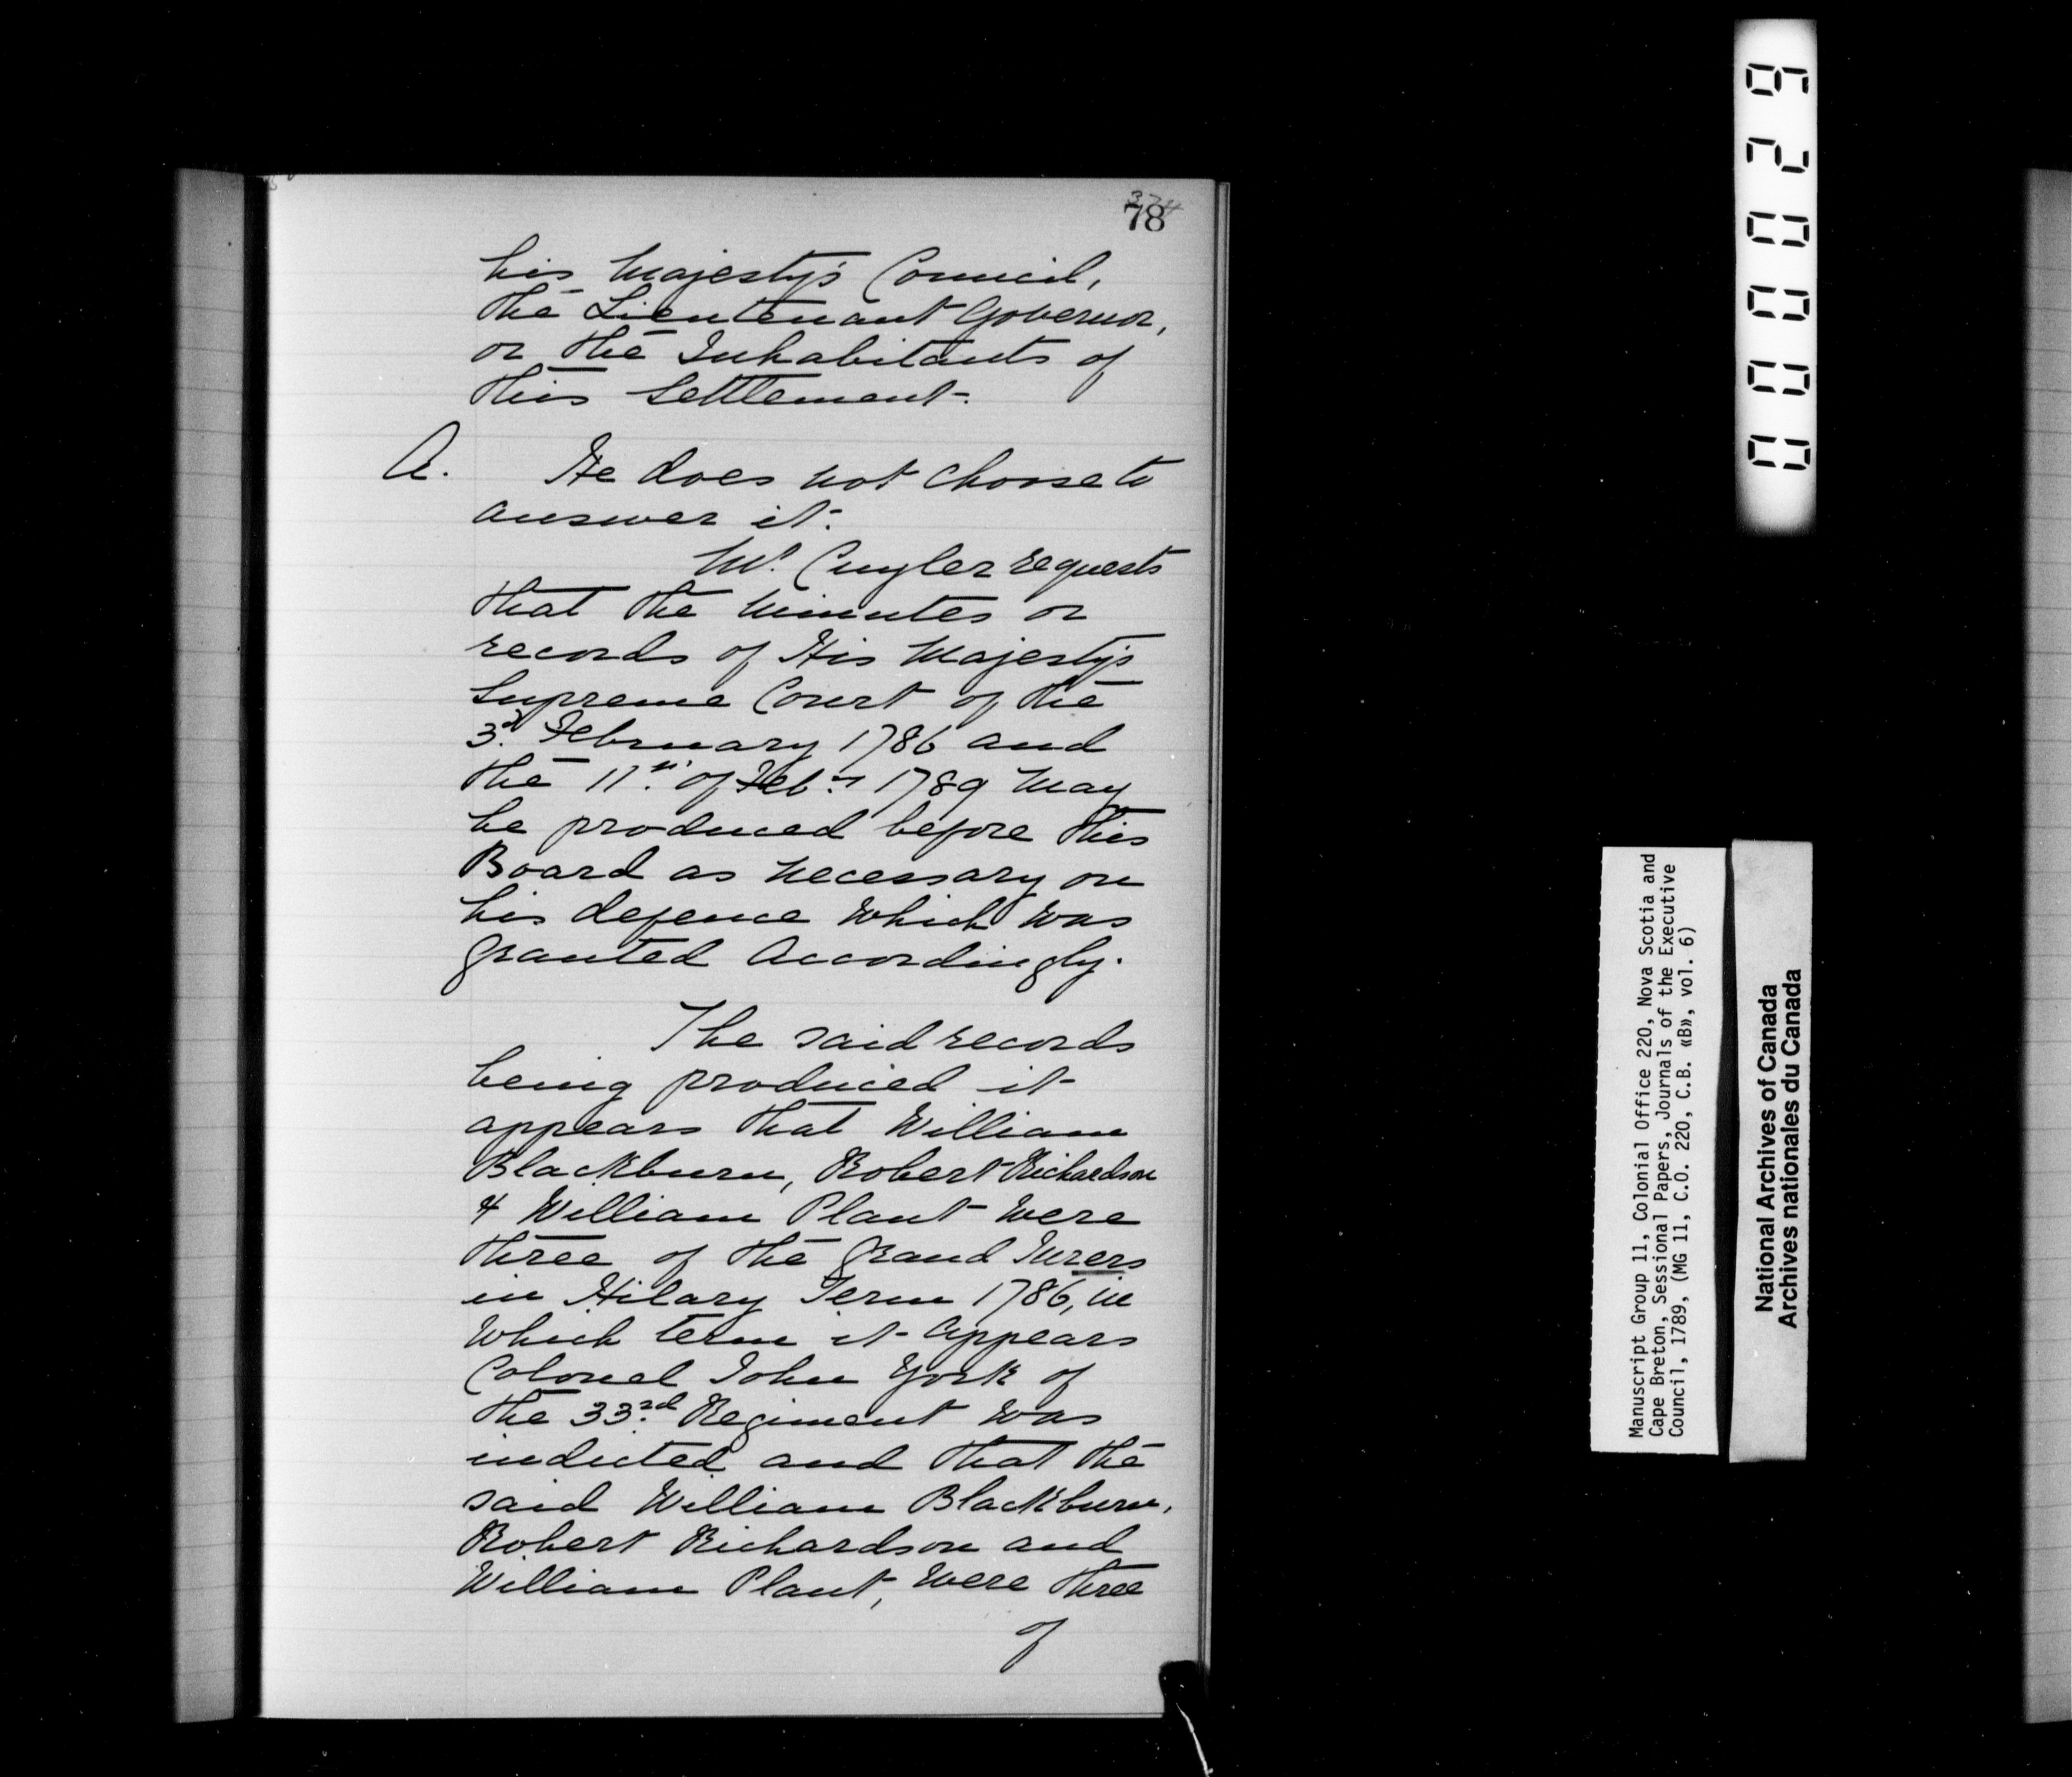 374
78
his Majesty's Council,
the Lieutenant Governor,
or the Inhabitants of
this Settlement.
A. He does not choose to
answer it.
Mr. Cuyler requests
that the Minutes or
records of His Majesty's
Supreme Court of the
3d. February 1786 and
the 11th. of Feby. 1789 may
be produced before this
Board as necessary on
his defence which was
granted Accordingly.
The said records
being produced it
appears that William
Blackburn, Robert Richardson
& William Plant were
three of the Grand Jurers
in Hilary Term 1786, in
which term it appears
Colonel John York of
the 33rd. Regiment was
indicted and that the
said William Blackburn,
Robert Richardson and
William Plant, were three
of
000029
Manuscript Group 11, Colonial Office 220, Nova Scotia and
Cape Breton, Sessional Papers, Journals of the Executive
Council, 1789, (MG 11, C.O. 220, C.B. «B», vol. 6)
National Archives of Canada
Archives nationales du Canada